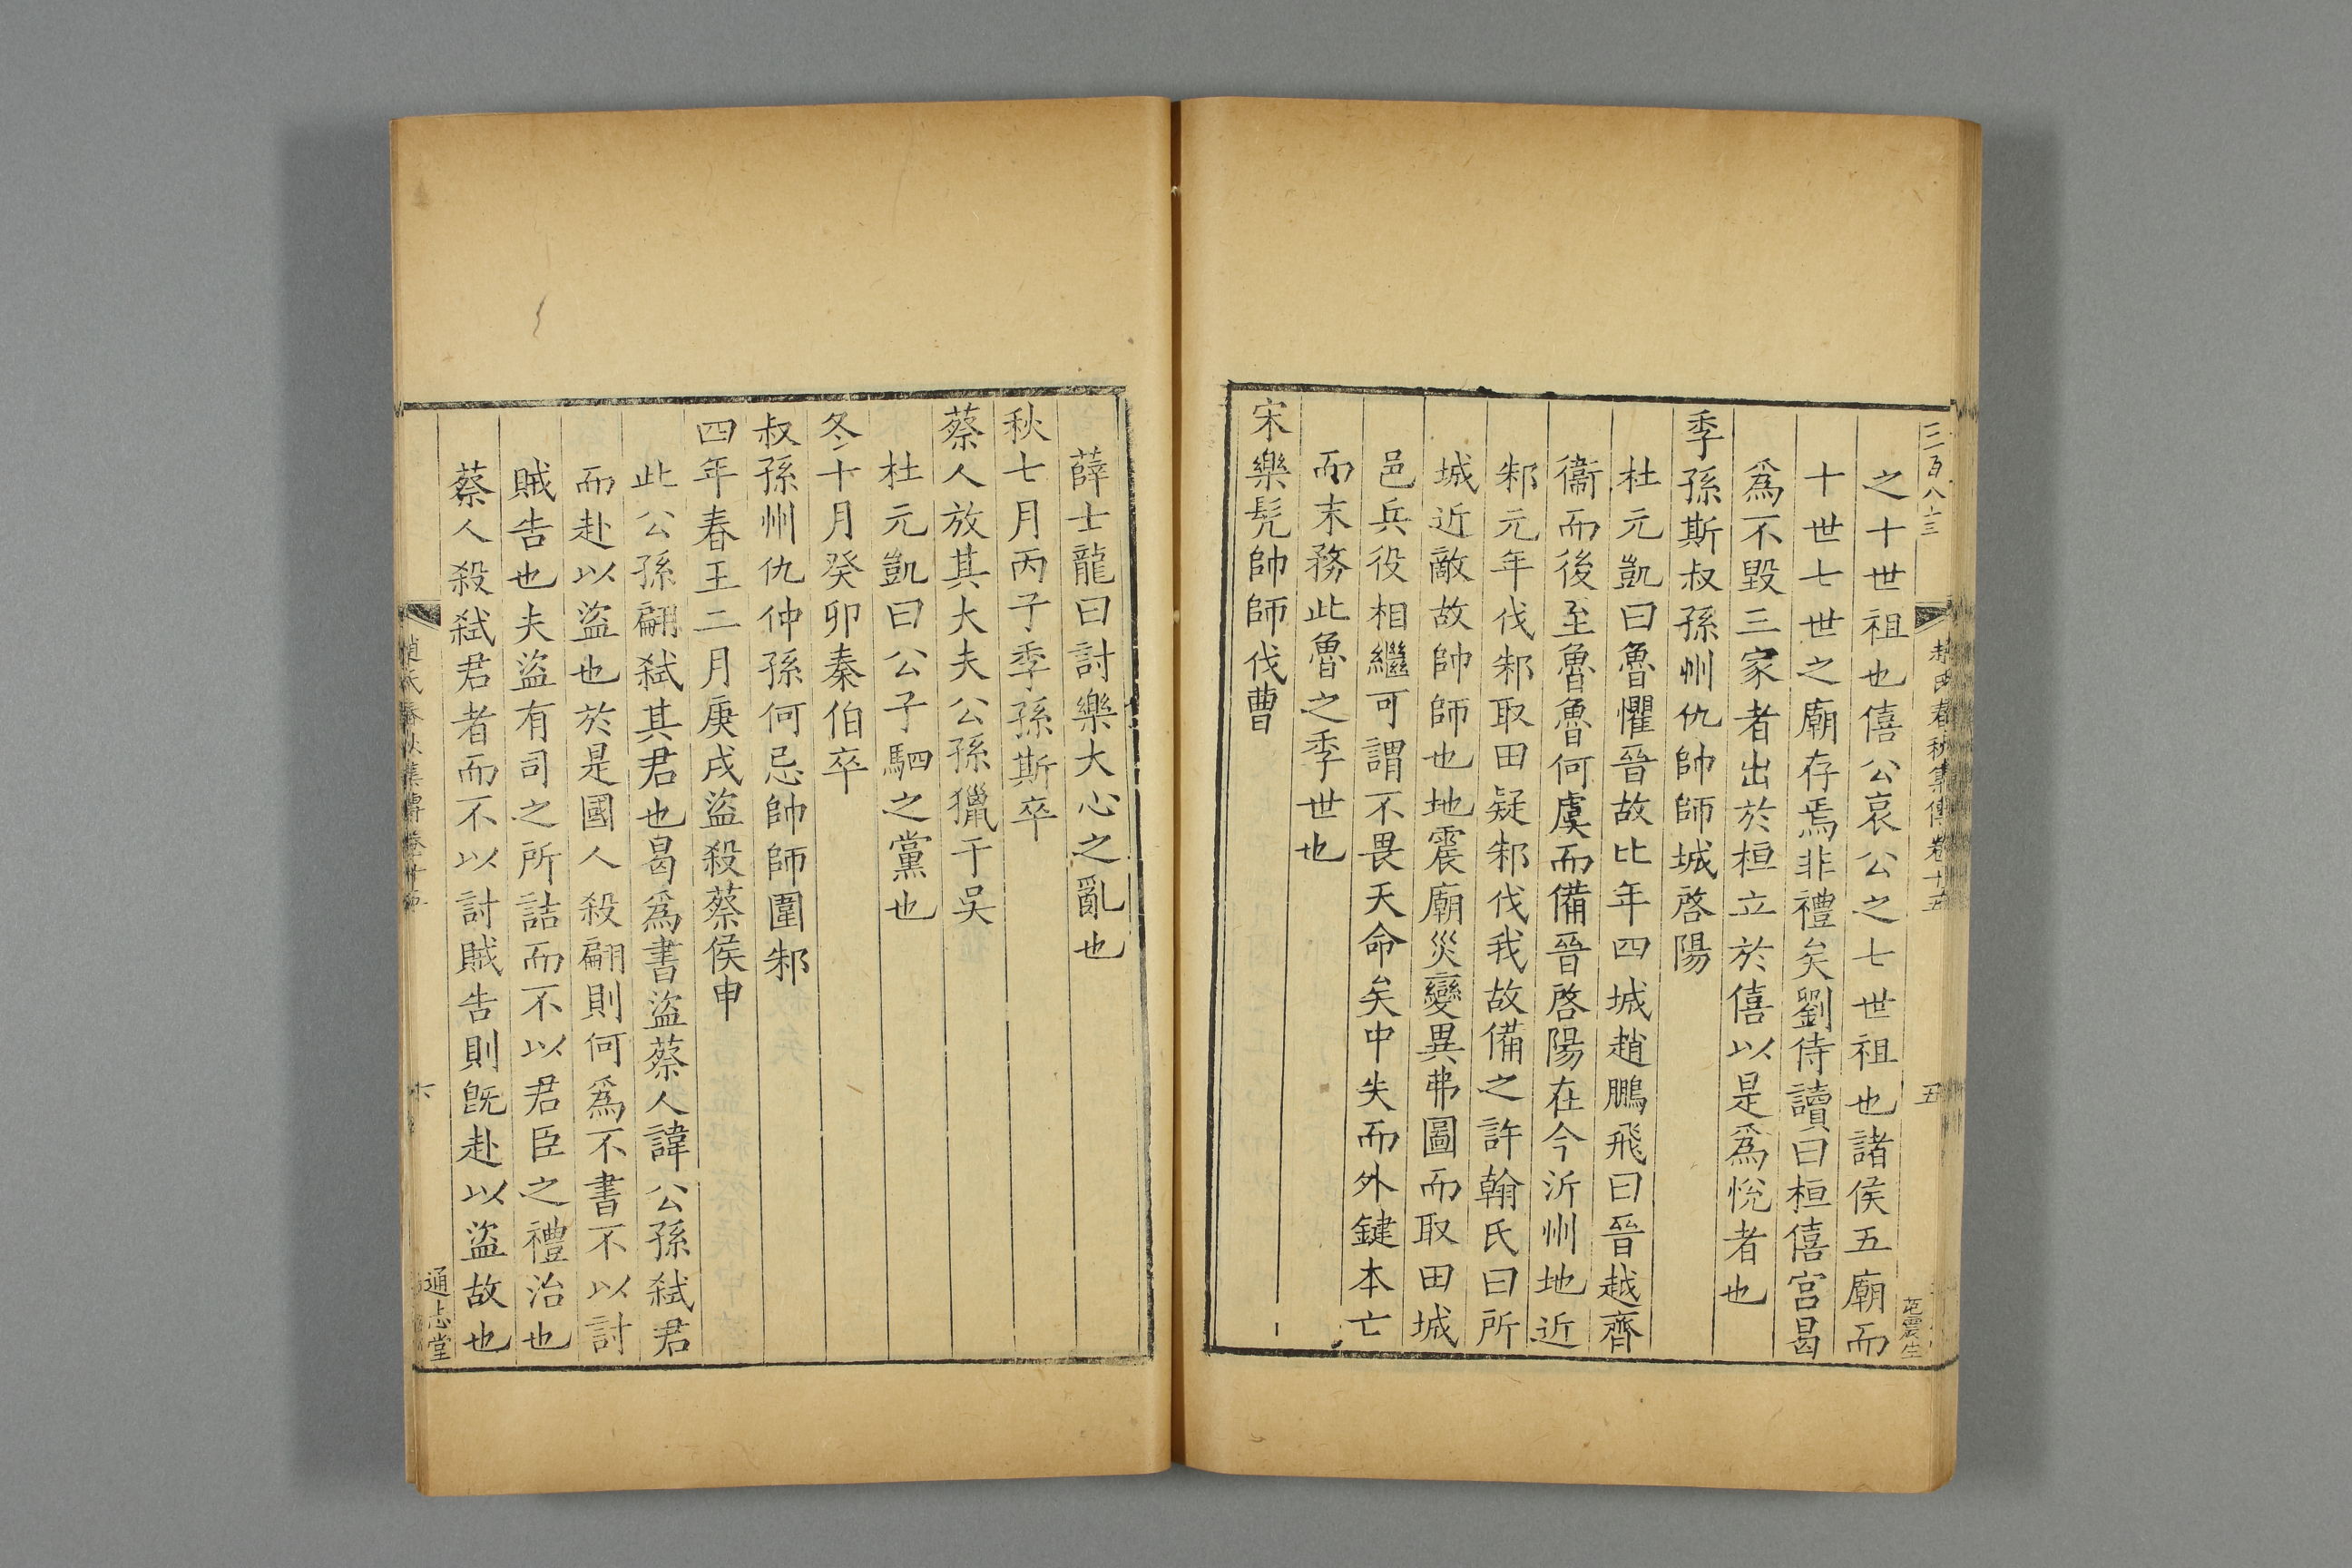 三百八十三
趙氏春秋集傳卷十五
五
范震生
之十世祖也僖公哀公之七世祖也諸侯五廟而
十世七世之廟存焉非禮矣劉侍讀曰桓僖宮曷
爲不毀三家者出於桓立於僖以是爲悅者也
季孫斯叔孫州仇帥師城啓陽
杜元凱曰魯懼晉故比年四城趙鵬飛曰晉越齊
衞而後至魯魯何虞而備晉啓陽在今沂州地近
邾元年伐邾取田疑邾伐我故備之許翰氏曰所
城近敵故帥師也地震廟災變異弗圖而取田城
邑兵役相繼可謂不畏天命矣中失而外鍵本亡
而末務此魯之季世也
宋樂髡帥師伐曹
薛士龍曰討樂大心之亂也
秋七月丙子季孫斯卒
蔡人放其大夫公孫獵于吳
杜元凱曰公子駟之黨也
冬十月癸卯秦伯卒
叔孫州仇仲孫何忌帥師圍邾
四年春王二月庚戌盜殺蔡侯申
此公孫翩弑其君也曷爲書盜蔡人諱公孫弑君
而赴以盜也於是國人殺翩則何爲不書不以討
賊告也夫盜有司之所詰而不以君臣之禮治也
蔡人殺弑君者而不以討賊告則旣赴以盜故也
趙氏春秋集傳卷十五
六
通志堂